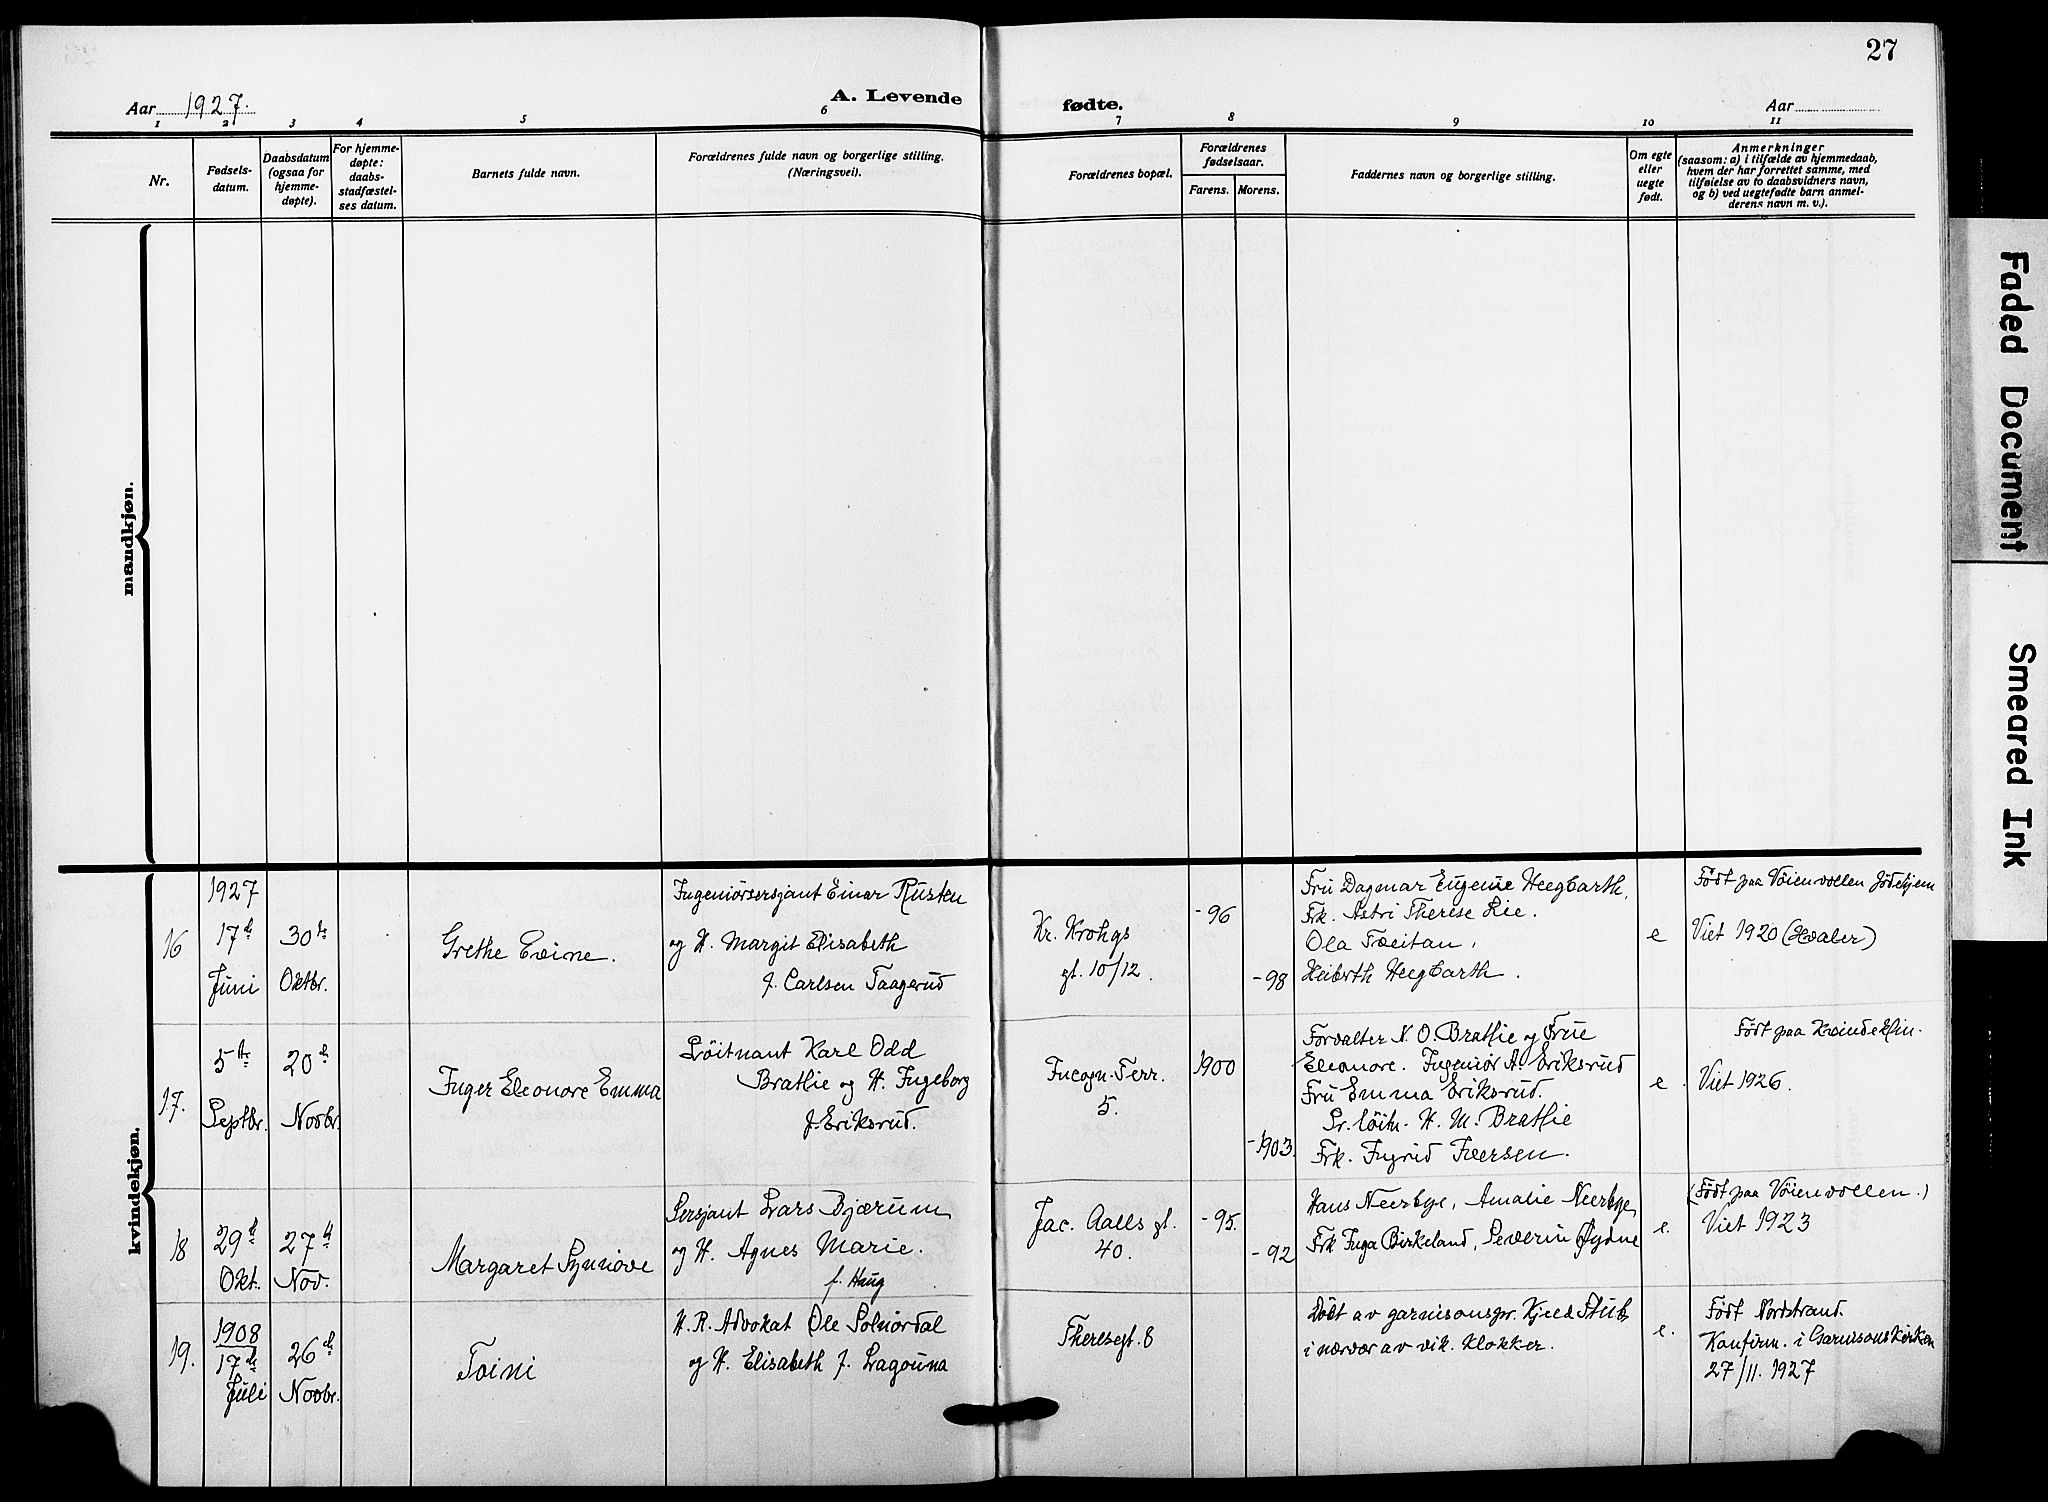 27
Aar 1927.
A. Levende
fødte.
Aar
1 2 3 4 5 6 7 8 9 10 11
Nr.
Fødsels-
datum.
Daabsdatum
(ogsaa for
hjemme-
døpte).
For hjemme-
døpte:
daabs-
stadfæstel-
ses datum.
Barnets fulde navn.
Forældrenes fulde navn og borgerlige stilling.
(Næringsvei).
Forældrenes bopæl.
Forældrenes
fødselsaar.
Farens. Morens.
Faddernes navn og borgerlige stilling.
Om egte
eller
uegte
født.
Anmerkninger
(saasom: a) i tilfælde av hjemmedaab,
hvem der har forrettet samme, med
tilføielse av to daabsvidners navn,
og b) ved uegtefødte barn anmel-
derens navn m. v.).
mandkjøn.
kvindekjøn.
16
1927
17de
Juni
30te
Oktbr.
Grethe Evine.
Ingeniørsersjant Einar Rusten
og H. Margit Elisabeth
f. Carlsen Taagerud
Kr. Krohgs
gt. 10/12.
-96
-98
Fru Dagmar Eugenie Heegbarth,
Frk. Astri Therese Lie.
Ola Tveitan,
Heibrth Heegbarth.
e
Født paa Vøienvollen fødehjem
Viet 1920 (Hvaler)
17.
5te
Septbr.
20de
Novbr.
Inger Eleonore Emma
Løitnant Karl Odd
Bratlie og H. Ingeborg
f. Eriksrud.
Incogn. Terr.
5.
1900
-1903.
Forvalter N. O. Bratlie og Frue
Eleonore. Ingeniør A. Eriksrud
Fru Emma Eriksrud.
Pr. løitn. H. M. Bratlie
Frk. Ingrid Iversen.
e.
Født paa Kvindeklin.
Viet 1926.
18
29de
Okt.
27de
Nov.
Margaret Synnøve
Sersjant Lars Bjærum
og H. Agnes Marie.
f. Haug
Jac. Aalls gt.
40.
-95.
-92
Hans Neerbye, Amalie Neerbye,
Frk Inga Birkeland, Severin Øydne
e.
(Født paa Vøienvollen.)
Viet 1923
19.
1908
17de
Juli
26de
Novbr.
Toini
H. R. Advokat Ole Solnørdal
og H. Elisabeth f. Lagouna
Theresegt. 8
Døbt av garnisonspr. Kjeld Stub
i nærvær av vik. klokker.
e.
Født Nordstrand.
Konfirm. i Garnisonskirken
27/11. 1927
Faded Document
Smeared Ink